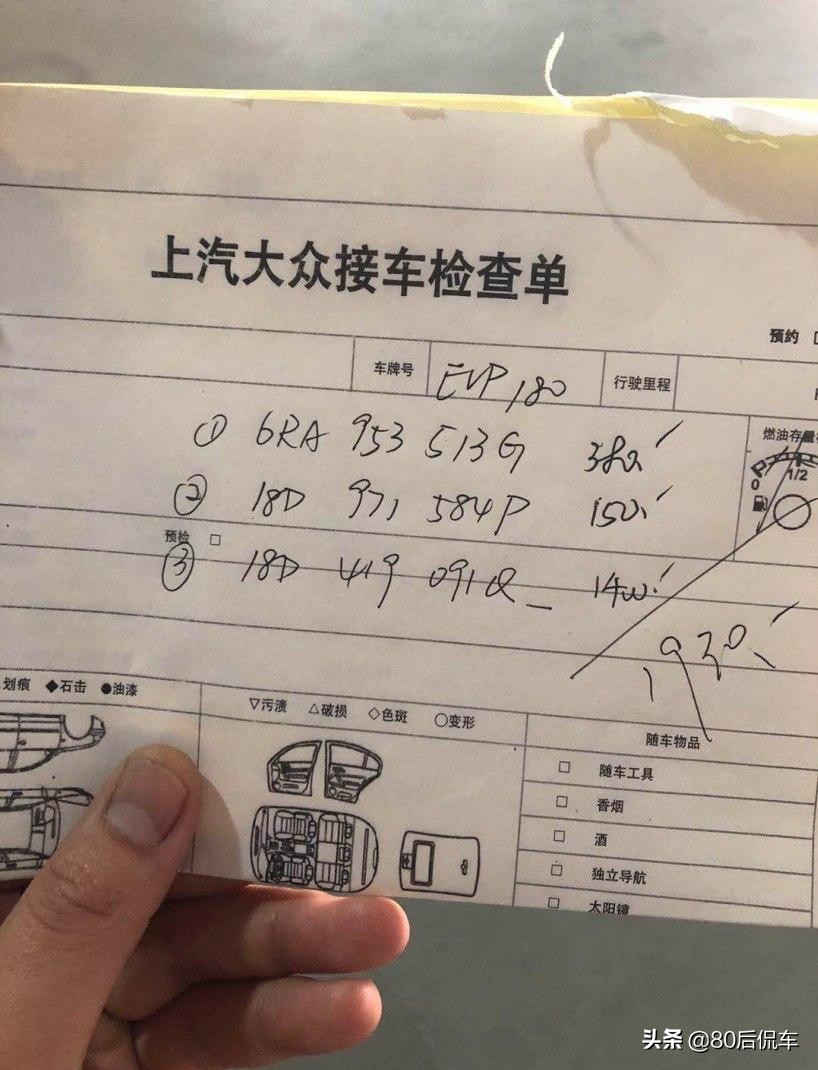 上汽大众接车检查单
预约
车牌号 EVP180 行驶里程
① 6RA 953 513G 380.
燃油存量
0 1/2
② 18D 971 584P 150.
预检 □
③ 18D 419 091Q 1400.
1930.
划痕 ◆石击 ●油漆
▽污渍 △破损 ◇色斑 ○变形
随车物品
□ 随车工具
□ 香烟
□ 酒
□ 独立导航
□ 太阳镜
头条 @80后侃车